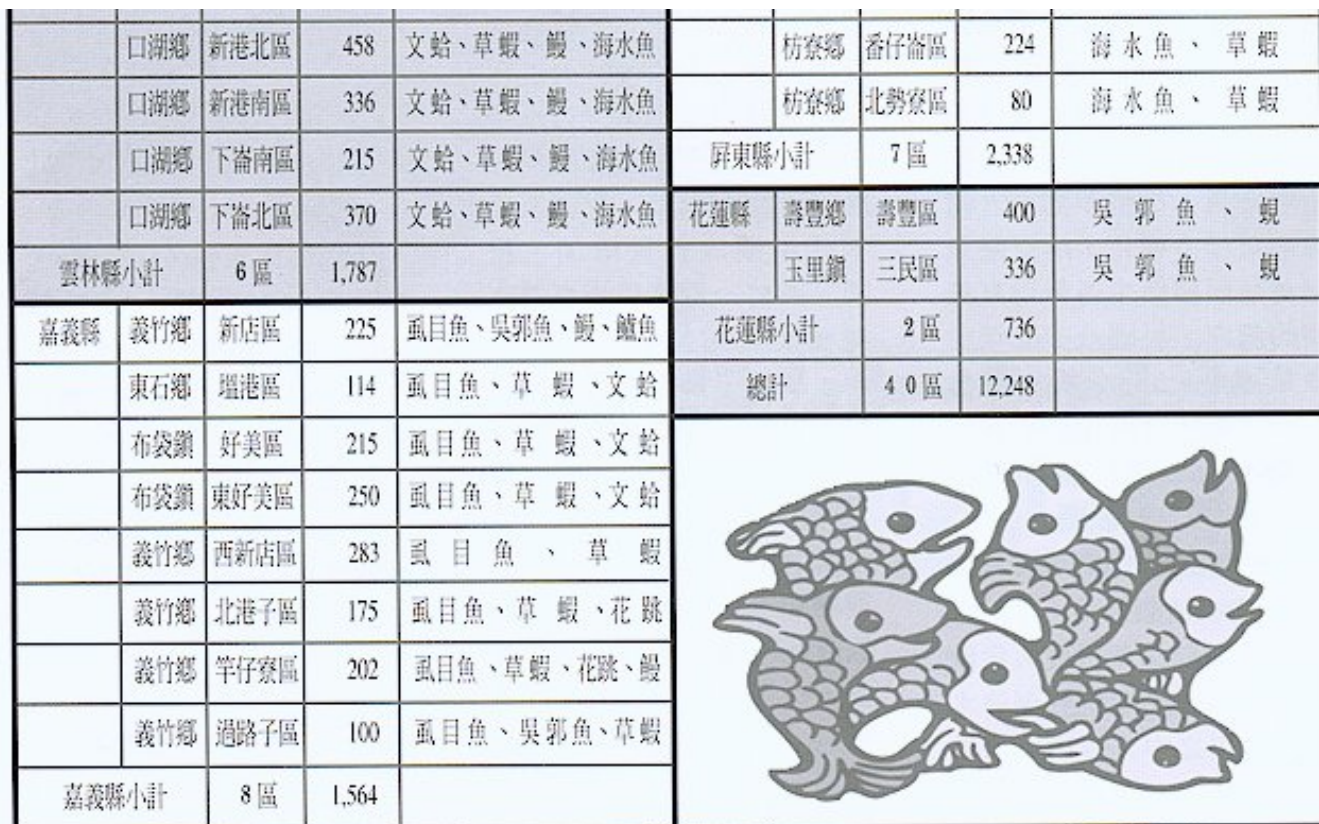 口湖鄉 新港北區 458 文蛤、草蝦、鰻、海水魚
口湖鄉 新港南區 336 文蛤、草蝦、鰻、海水魚
口湖鄉 下崙南區 215 文蛤、草蝦、鰻、海水魚
口湖鄉 下崙北區 370 文蛤、草蝦、鰻、海水魚
雲林縣小計 6區 1,787
嘉義縣 義竹鄉 新店區 225 虱目魚、吳郭魚、鰻、鱸魚
東石鄉 塭港區 114 虱目魚、草蝦、文蛤
布袋鎮 好美區 215 虱目魚、草蝦、文蛤
布袋鎮 東好美區 250 虱目魚、草蝦、文蛤
義竹鄉 西新店區 283 虱目魚、草蝦
義竹鄉 北港子區 175 虱目魚、草蝦、花跳
義竹鄉 竿仔寮區 202 虱目魚、草蝦、花跳、鰻
義竹鄉 過路子區 100 虱目魚、吳郭魚、草蝦
嘉義縣小計 8區 1,564
枋寮鄉 番仔崙區 224 海水魚、草蝦
枋寮鄉 北勢寮區 80 海水魚、草蝦
屏東縣小計 7區 2,338
花蓮縣 壽豐鄉 壽豐區 400 吳郭魚、蜆
玉里鎮 三民區 336 吳郭魚、蜆
花蓮縣小計 2區 736
總計 40區 12,248